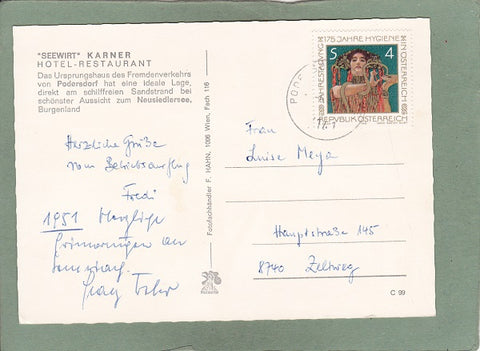 "SEEWIRT" KARNER
HOTEL-RESTAURANT
Das Ursprungshaus des Fremdenverkehrs
von Podersdorf hat eine ideale Lage,
direkt am schilffreien Sandstrand bei
schönster Aussicht zum Neusiedlersee,
Burgenland
Herzliche Grüße
vom Betriebsausflug
Fredi
1951 Herzliche
Erinnerungen an
Fotofachhändler F. HAHN, 1006 Wien, Fach 116
175 JAHRE HYGIENE
IN ÖSTERREICH
S 4
REPUBLIK ÖSTERREICH
PODE
Frau
Luise Meya
Hauptstraße 145
8740 Zeltweg
C 99